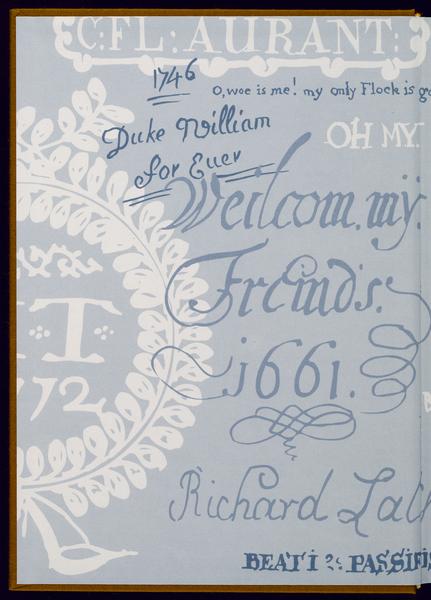 C:FL:AURANT:
1746
O, woe is me! my only Flock is
Duke William
for Euer
OH MY.
Weilcom. my.
Freinds.
1661.
T
Richard
BEATI PASSIFI